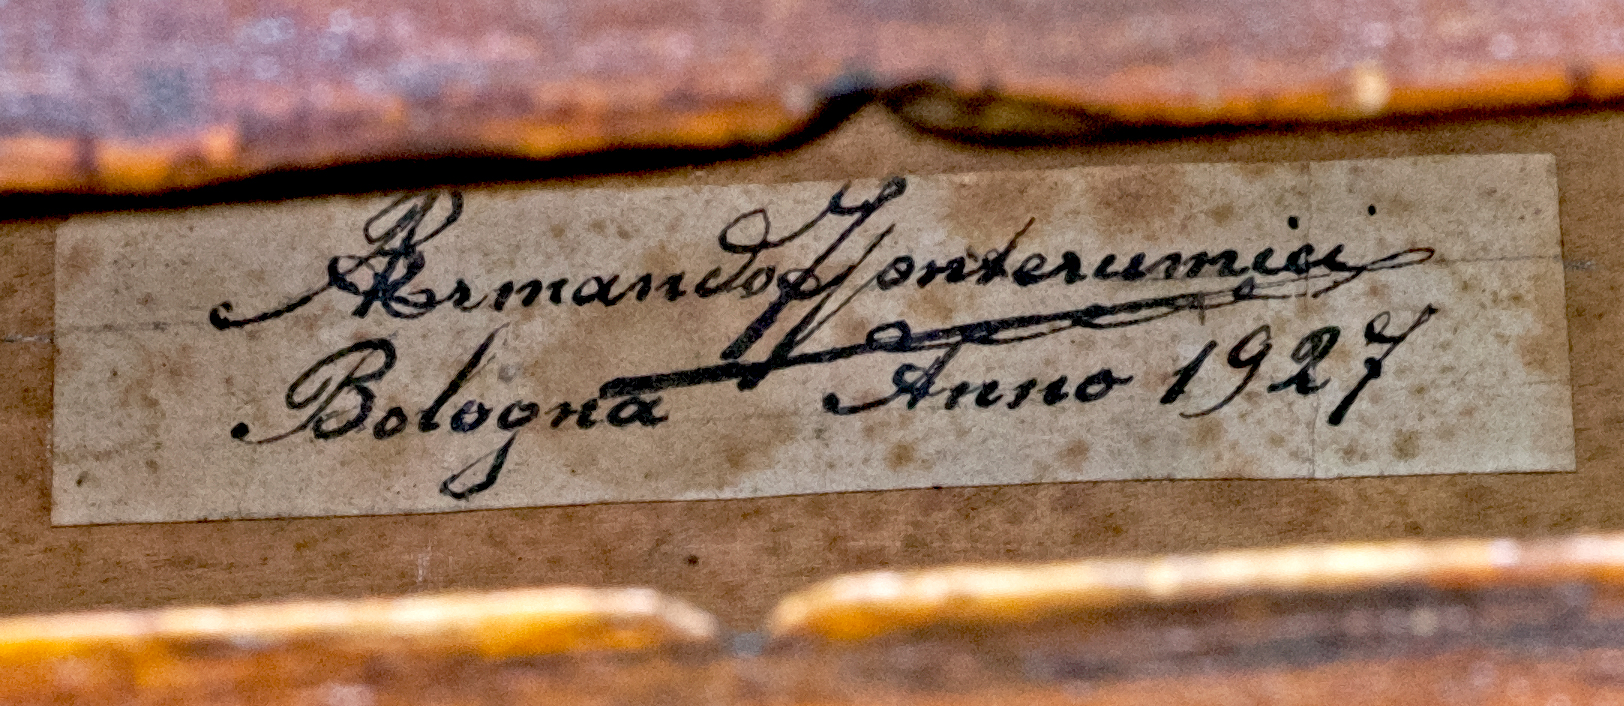 Armando Monterumici
Bologna Anno 1927